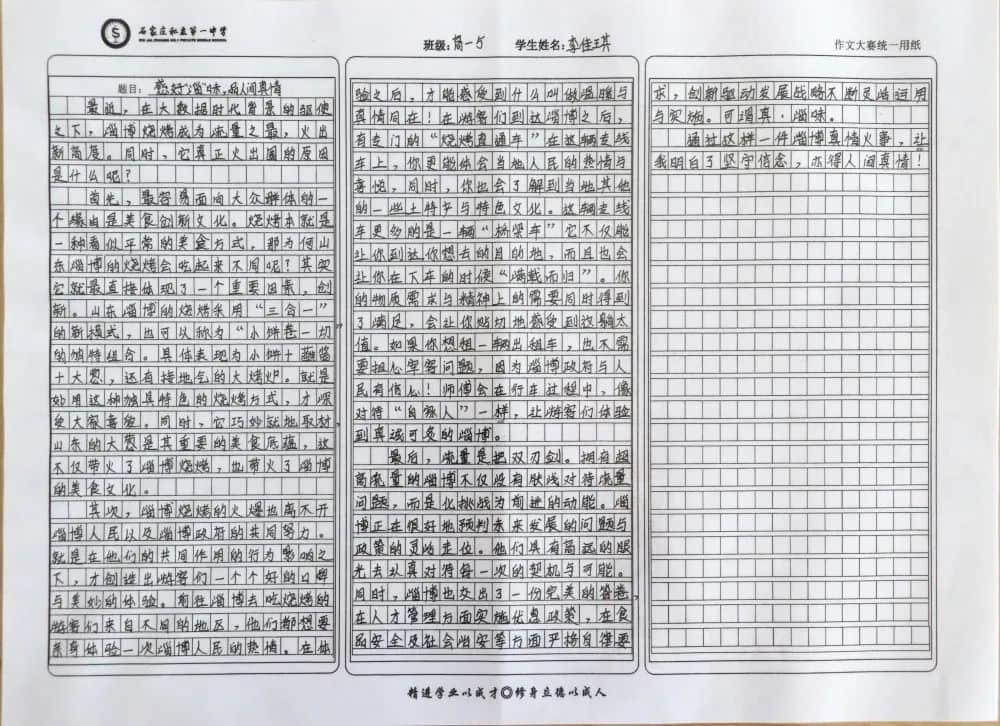 石家庄私立第一中学
SHI JIA ZHUANG NO.1 PRIVATE MIDDLE SCHOOL
班级:高一5 学生姓名:李佳琪 作文大赛统一用纸
题目:感好“淄”味,品人间真情
最近,在大数据时代背景的驱使
之下,淄博烧烤成为流量之最,火出
新高度。同时,它真正火出圈的原因
是什么呢?
首先,最容易面向大众群体的一
个缘由是美食创新文化。烧烤本就是
一种看似平常的美食方式,那为何山
东淄博的烧烤会吃起来不同呢?其实
它就最直接体现了一个重要因素,创
新。山东淄博的烧烤采用“三合一”
的新模式,也可以称为“小饼卷一切”
的独特组合。具体表现为小饼+蘸酱
+大葱,还有接地气的大烤炉。就是
妙用这种独具特色的烧烤方式,才深
受大家喜爱。同时,它巧妙就地取材,
山东的大葱是其重要的美食底蕴,这
不仅带火了淄博烧烤,也带火了淄博
的美食文化。
其次,淄博烧烤的火爆也离不开
淄博人民以及淄博政府的共同努力。
就是在他们的共同作用的行为影响之
下,才创造出游客们一个个好的口碑
与美妙的体验。前往淄博去吃烧烤的
游客们来自不同的地区,他们都想要
亲身体验一次淄博人民的热情。在体
验之后,才能感受到什么叫做温暖与
真情同在!在游客们到达淄博之后,
有专门的“烧烤直通车”在这辆专线
车上,你更能体会当地人民的热情与
喜悦,同时,你也会了解到当地其他
的一些土特产与特色文化。这辆专线
车更多的是一辆“桥梁车”它不仅能
让你到达你想去的目的地,而且也会
让你在下车的时候“满载而归”。你
的物质需求与精神上的需要同时得到
了满足,会让你贴切地感受到这躺太
值。如果你想租一辆出租车,也不需
要担心宰客问题,因为淄博政府与人
民有信心!师傅会在行车过程中,像
对待“自家人”一样,让游客们体验
到真诚可爱的淄博。
最后,流量是把双刃剑。拥有超
高流量的淄博不仅没有肤浅对待流量
问题,而是化挑战为前进的动能。淄
博正在很好地预判未来发展的问题与
政策的灵活走位。他们具有高远的眼
光去认真对待每一次的契机与可能。
同时,淄博也交出了一份完美的答卷,
在人才管理方面实施优惠政策,在食
品安全及社会治安等方面严格自律要
求,创新驱动发展战略不断灵活运用
与实施。可谓真·淄味。
通过这样一件淄博真情火事,让
我明白了坚守信念,亦得人间真情!
精进学业以成才 修身立德以成人